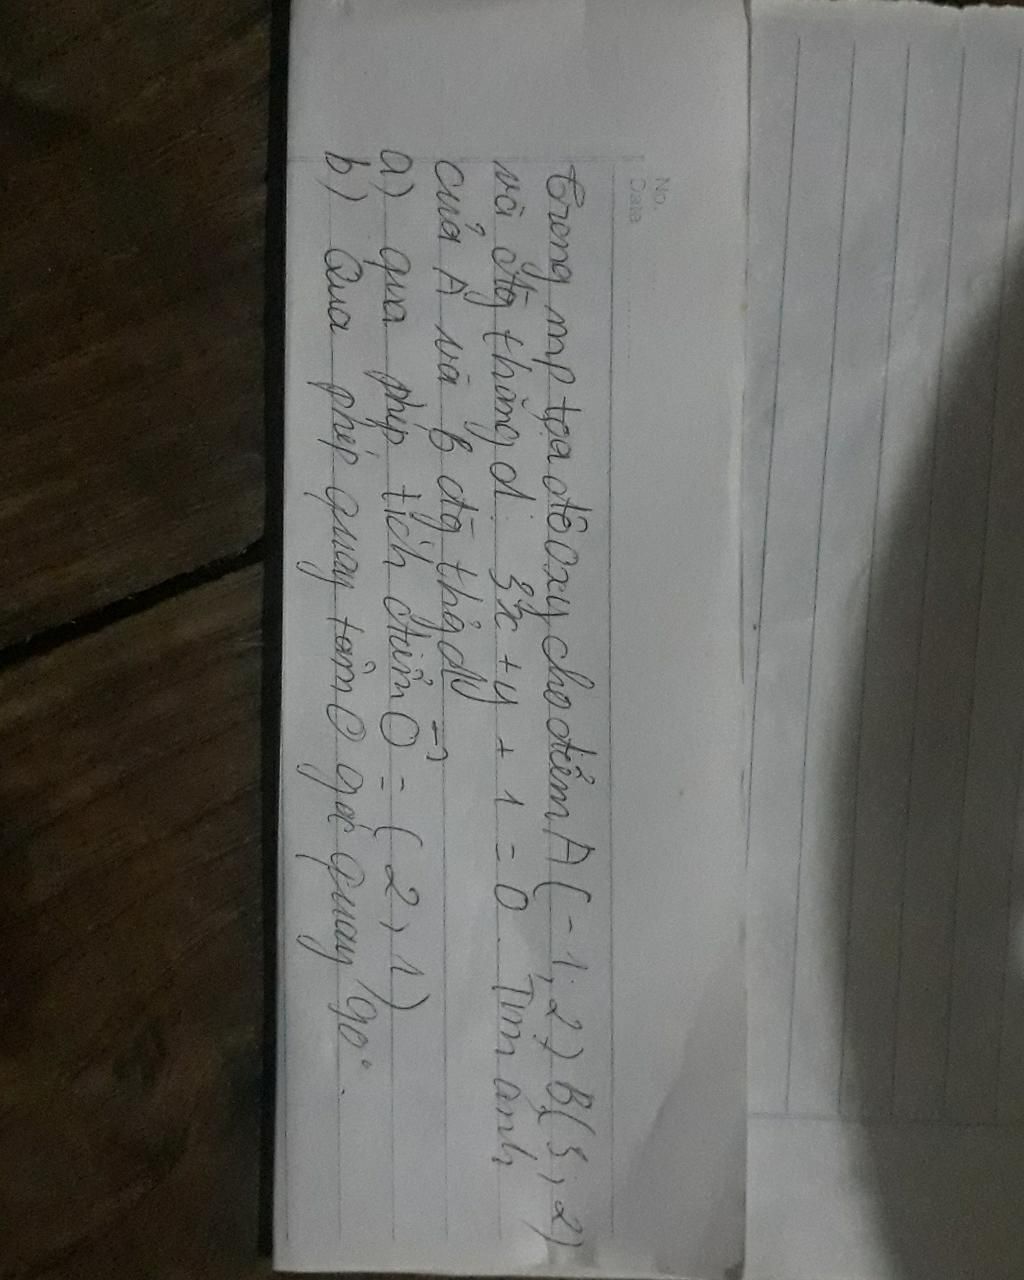 No.
Date
trong mp tọa độ oxy cho điểm A(-1; 2) B(3; 2)
và đtg thẳng d: 3x + y + 1 = 0. Tìm ảnh
của A và B đtg thẳng d
a) qua phép tịch điểm = (2, 1)
b) Qua phép quay tâm O góc quay 90°.